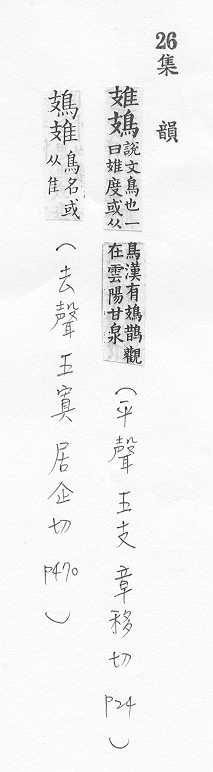 26集 韻
䧴鳷說文鳥也一曰䧴度或从鳥漢有鳷鵲觀在雲陽甘泉(平聲五支章移切 P24)
鳷䧴鳥名或从隹(去聲五寘居企切 P470)